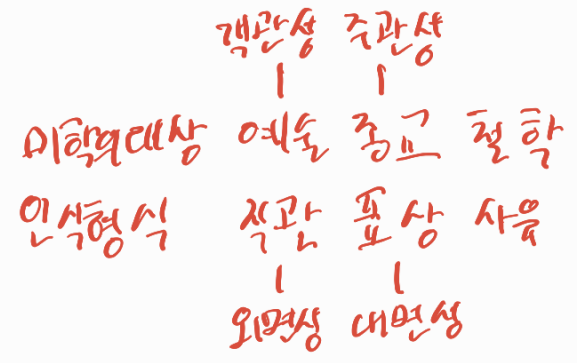 객관성 주관성
미학의대상 예술 종교 철학
인식형식 직관 표상 사유
외면성 내면성